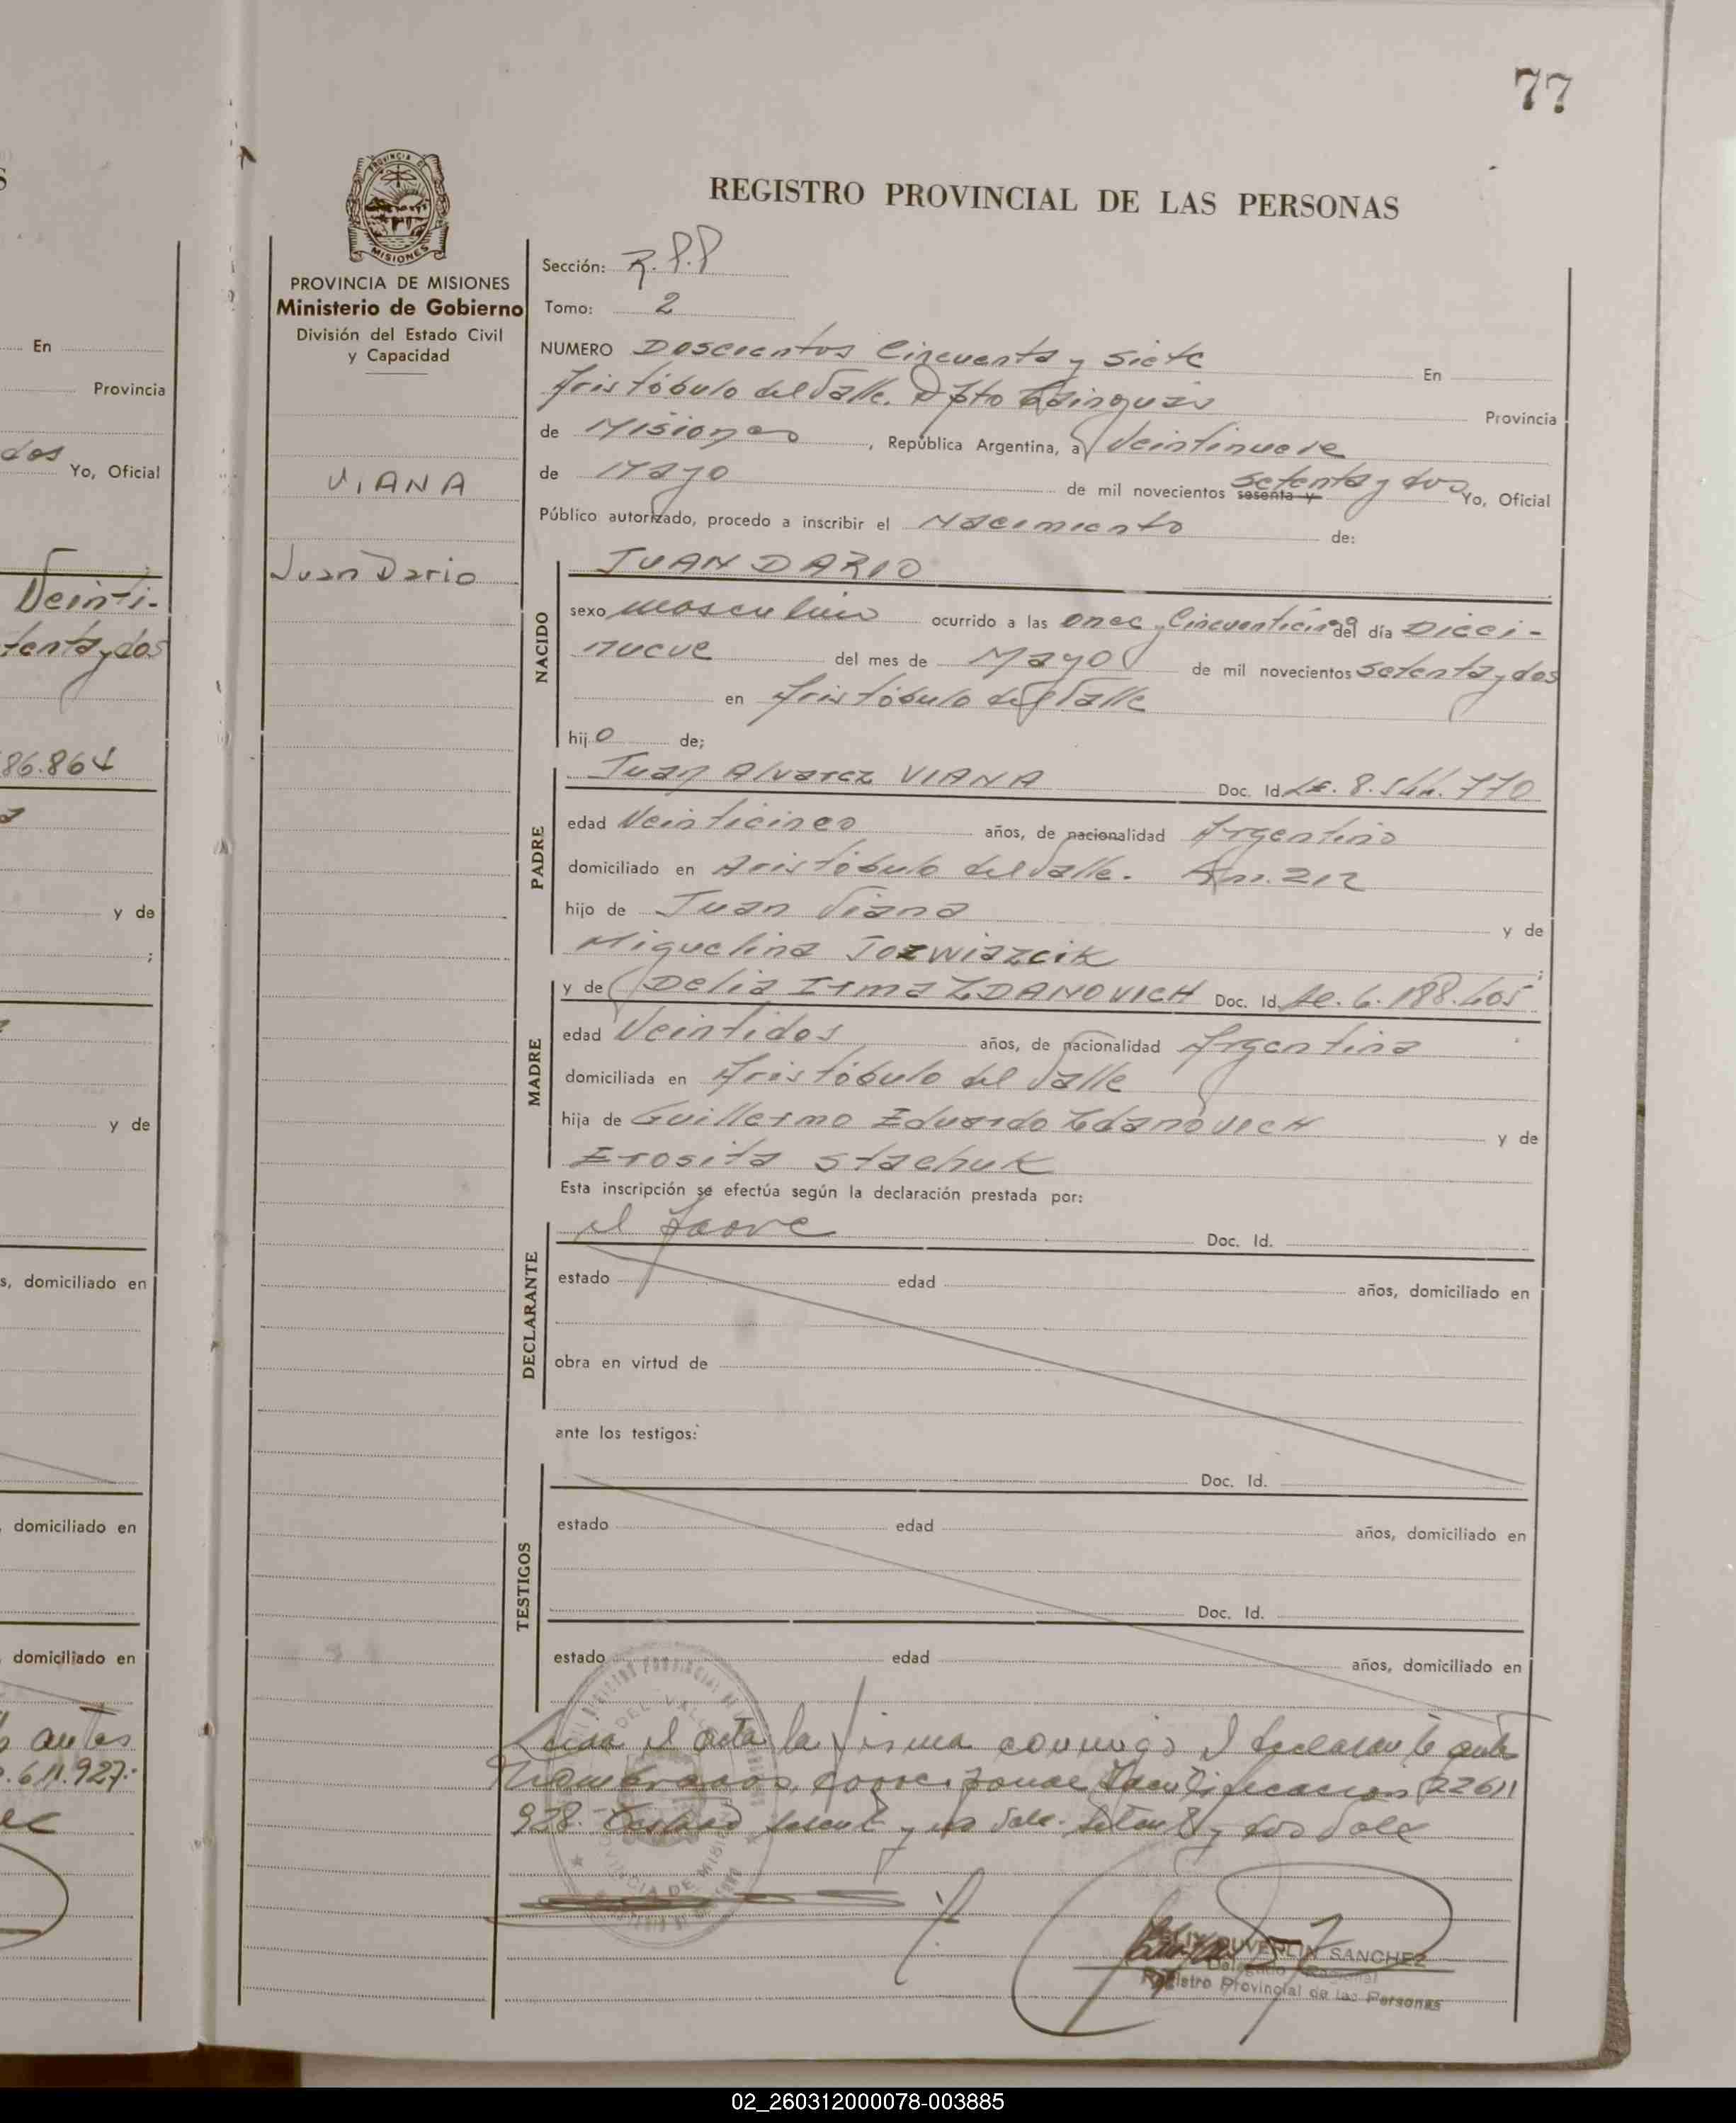 77
REGISTRO PROVINCIAL DE LAS PERSONAS
PROVINCIA DE MISIONES
Ministerio de Gobierno
División del Estado Civil
y Capacidad
VIANA
Juan Dario
Sección: R.P.P
Tomo: 2
NUMERO Doscientos Cincuenta y siete En
Aristóbulo del Valle. Dpto Cainguás Provincia
de Misiones, República Argentina, a Veintinueve
de Mayo de mil novecientos sesenta y setenta y dos Yo, Oficial
Público autorizado, procedo a inscribir el Nacimiento de:
NACIDO
JUAN DARIO
sexo masculino ocurrido a las once y Cincuenticinco del día Dieci-
nueve del mes de Mayo de mil novecientos setenta y dos
en Aristóbulo del Valle
hijo de;
PADRE
Juan Alvarez VIANA Doc. Id. 770
edad Veinticinco años, de nacionalidad Argentino
domiciliado en Aristóbulo del Valle. Km. 212
hijo de Juan Viana y de
Miguelina Jozwiazcik;
MADRE
y de Delia Irma ZDANOVICH Doc. Id.
edad Veintidos años, de nacionalidad Argentina
domiciliada en Aristóbulo del Valle
hija de Guillermo Eduardo Zdanovich y de
Erosita Stachuk
Esta inscripción se efectúa según la declaración prestada por:
DECLARANTE
el Padre Doc. Id.
estado edad años, domiciliado en
obra en virtud de
ante los testigos:
TESTIGOS
Doc. Id.
estado edad años, domiciliado en
Doc. Id.
estado edad años, domiciliado en
Leida el acta la firma conmigo el declarante antes
nombrado, corresponde Identificacion 22611
928.- Testado sesenta y no Vale. setenta y dos Vale
FELIX DUVERLIN SANCHEZ
Delegado Regional
Registro Provincial de las Personas
En
Provincia
dos
Yo, Oficial
Veinti-
tenta y dos
86.864
y de
;
y de
s, domiciliado en
, domiciliado en
domiciliado en
antes
.611.927.-
02_260312000078-003885